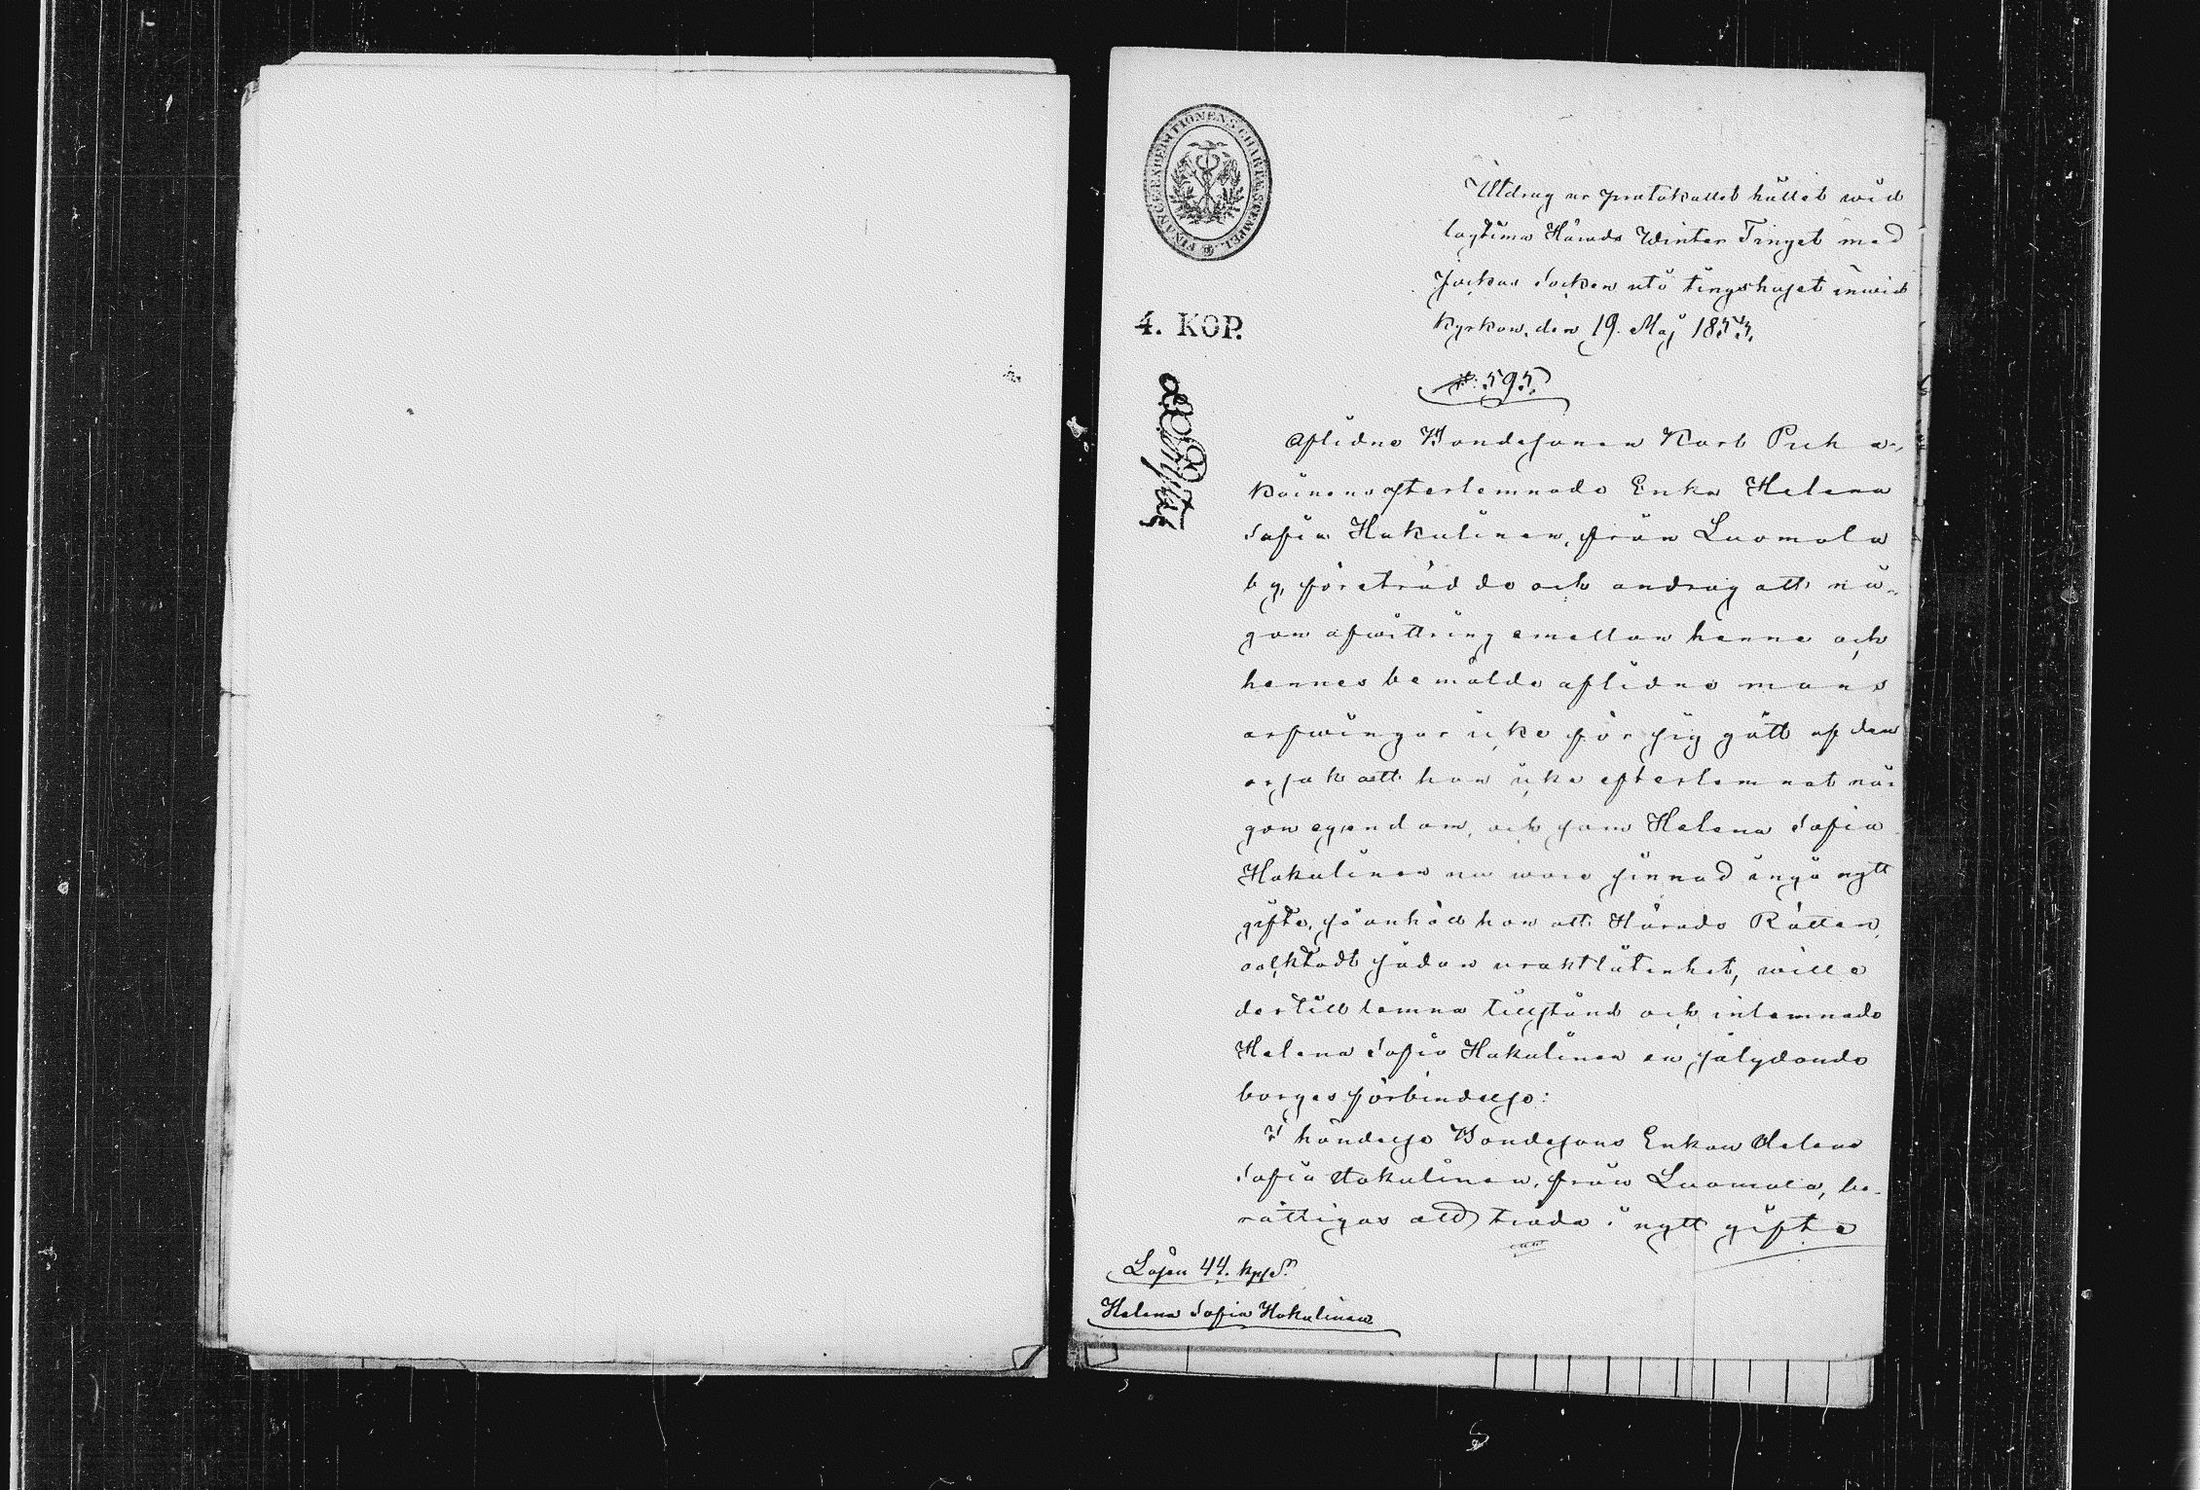 FINANCE EXPEDITIONENS CHARTÆ STEMPEL.
4. KOP.
Utdrag ur protokollet hållet wid
lagtima Härads Winter Tinget med
Jockas Socken uti tingshuset inwid
Kyrkan, den 19. Maj 1853.
№: 595.
Aflidne Bondesonen Karl Puh a-
käinens efterlemnade Enka Helena
Sofia Hakulinen, från Luomala
by, företrädde och andrag att nå-
gon afwittring emellan henne och
hennes bemälde aflidne mans
arfwingar icke för sig gått af den
orsak att han icke efterlemnat nå-
gon egendom, och som Helena Sofia
Hakulinen nu wore sinnad ingå nytt
gifte, så anhöll hon att Härads Rätten,
oaktadt sådan uraktlåtenhet, wille
dertill lemna tillstånd och inlemnade
Helena Sofia Hakulinen en så lydande
borgesförbindelse:
I händelse Bondesons Enkan Helena
Sofia Hakulinen, från Luomala, be-
rättigas att träda i nytt gifte
Lösen 44. kop. Sr
Helena Sofia Hakulinen